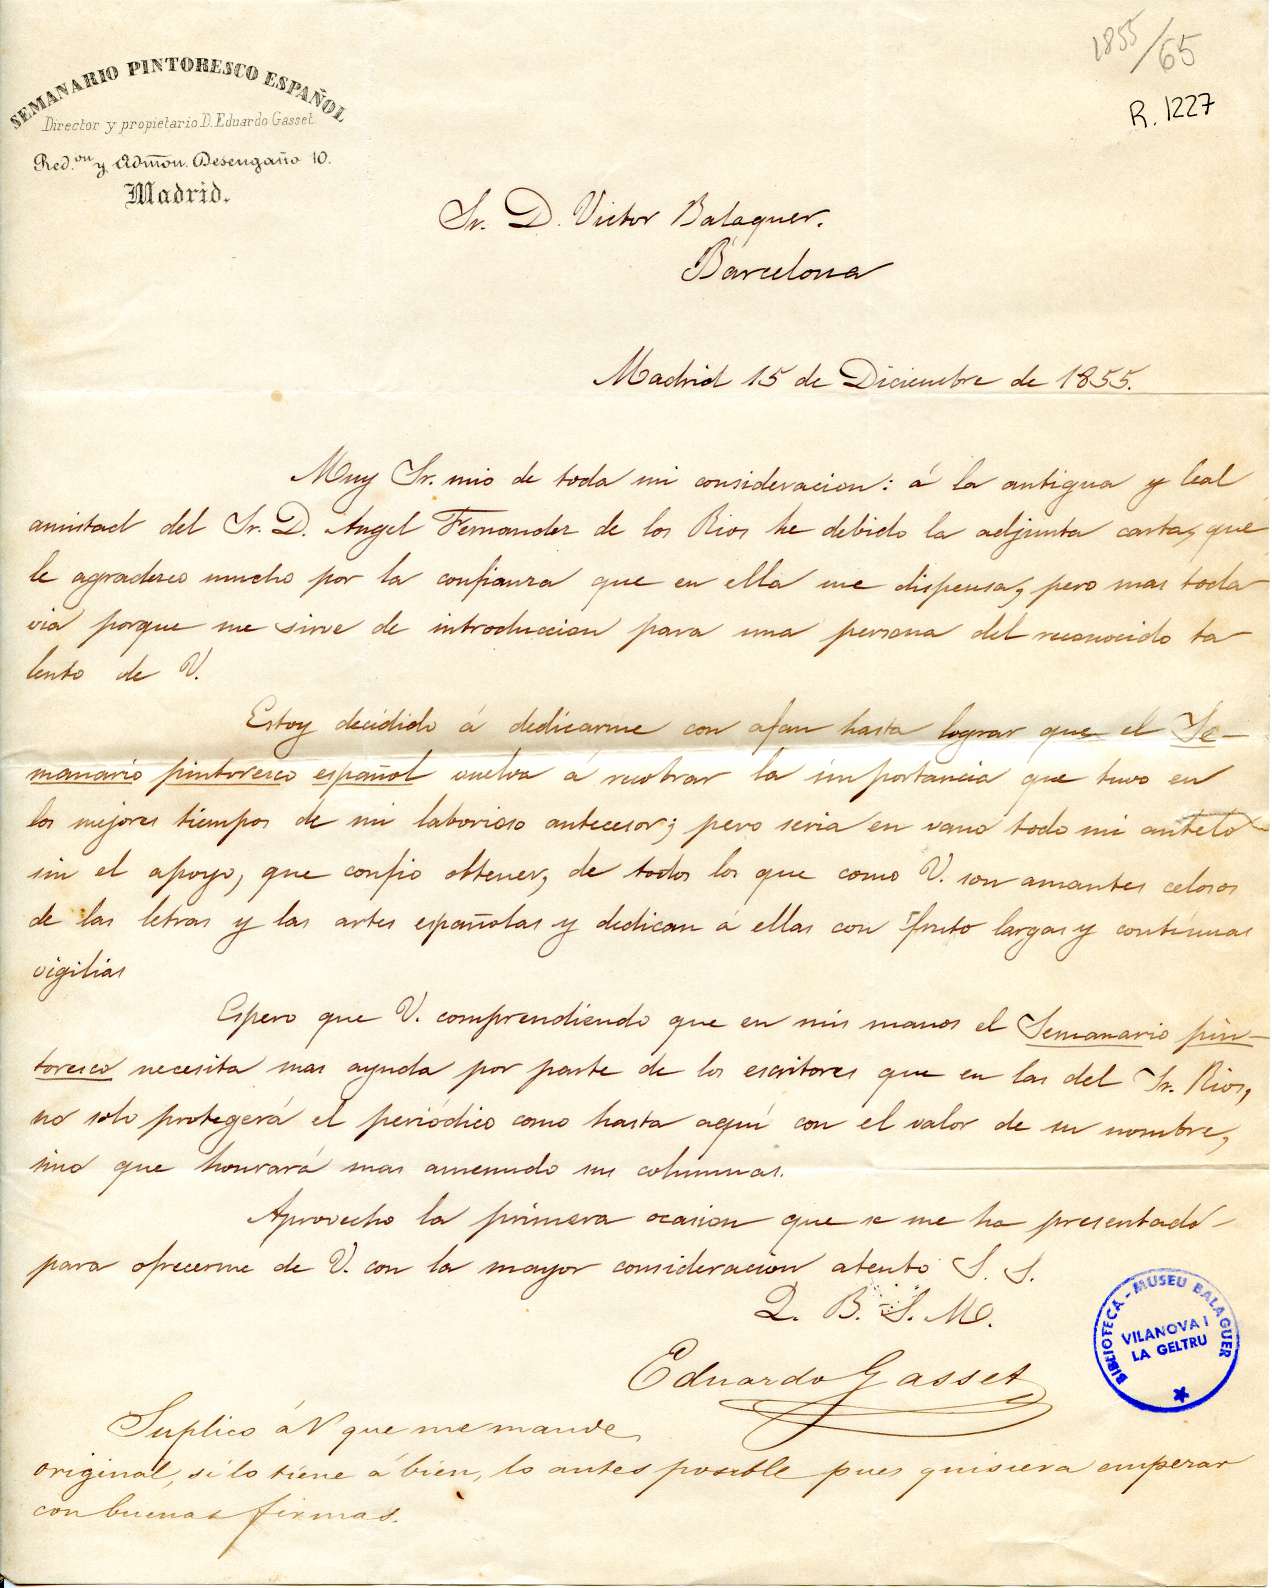 1855/65
R. 1227
SEMANARIO PINTORESCO ESPAÑOL
Director y propietario D. Eduardo Gasset
Red.on y Admon. Desengaño 10.
Madrid.
Sr. D. Victor Balaguer.
Barcelona
Madrid 15 de Diciembre de 1855.
Muy Sr. mio de toda mi consideracion: á la antigua y leal
amistad del Sr. D. Angel Fernandez de los Rios he debido la adjunta carta, que
le agradezco mucho por la confianza que en ella me dispensa, pero mas toda
via porque me sirve de introduccion para una persona del reconocido ta
lento de V.
Estoy decidido á dedicarme con afan hasta lograr que el Se-
manario pintoresco español vuelva á recobrar la importancia que tuvo en
los mejores tiempos de mi laborioso antecesor; pero seria en vano todo mi anhelo
sin el apoyo, que confio obtener, de todos los que como V. son amantes celosos
de las letras y las artes españolas y dedican á ellas con fruto largas y contínuas
vigilias
Espero que V. comprendiendo que en mis manos el Semanario pin-
toresco necesita mas ayuda por parte de los escritores que en las del Sr. Rios,
no solo protegerá el periódico como hasta aquí con el valor de su nombre,
sino que honrará mas amenudo sus columnas.
Aprovecho la primera ocasion que se me ha presentado
para ofrecerme de V. con la mayor consideracion atento S. S.
Q. B. S. M.
Eduardo Gasset
Suplico á V que me mande
original, si lo tiene á bien, lo antes posible pues quisiera empezar
con buenas firmas.
BIBLIOTECA - MUSEU BALAGUER
VILANOVA I
LA GELTRU